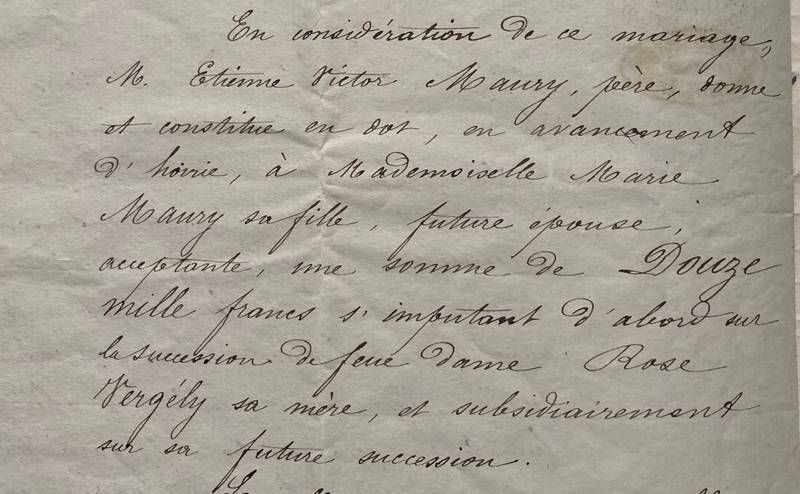 En considération de ce mariage,
M. Etienne Victor Maury, père, donne
et constitue en dot, en avancement
d'hoirie, à Mademoiselle Marie
Maury sa fille, future épouse,
acceptante, une somme de Douze
mille francs s'imputant d'abord sur
la succession de feue dame Rose
Vergély sa mère, et subsidiairement
sur sa future succession.